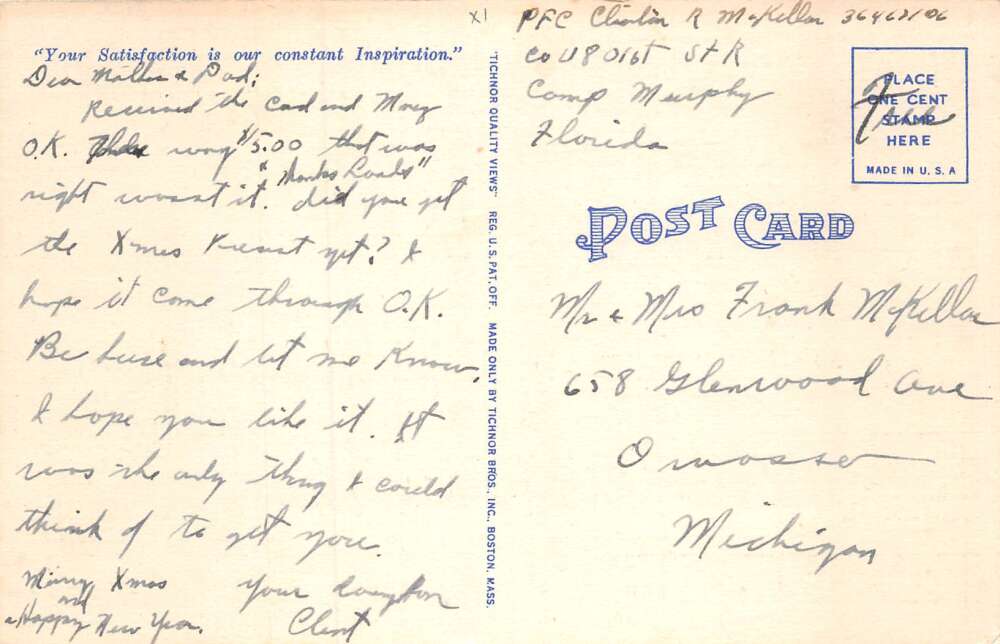 "Your Satisfaction is our constant Inspiration."
Dear Mother & Dad;
Received the Card and Money
O.K. $15.00 that was
right wasnt it. "Thanks Loads" did you get
the Xmas Present yet? I
hope it come through O.K.
Be suse and let me know.
I hope you like it. It
was the only thing I could
think of to get you.
Merry Xmas
and
a Happy New Year.
Your loving Son
Clint
XI
"TICHNOR QUALITY VIEWS" REG. U.S. PAT. OFF. MADE ONLY BY TICHNOR BROS., INC., BOSTON, MASS.
PFC Clinton R McKellar
Co U 801st S+R
Camp Murphy
Florida
PLACE
ONE CENT
STAMP
HERE
MADE IN U. S. A
Free
POST CARD
Mr & Mrs Frank McKellar
658 Glenwood Ave
Owosso
Michigan